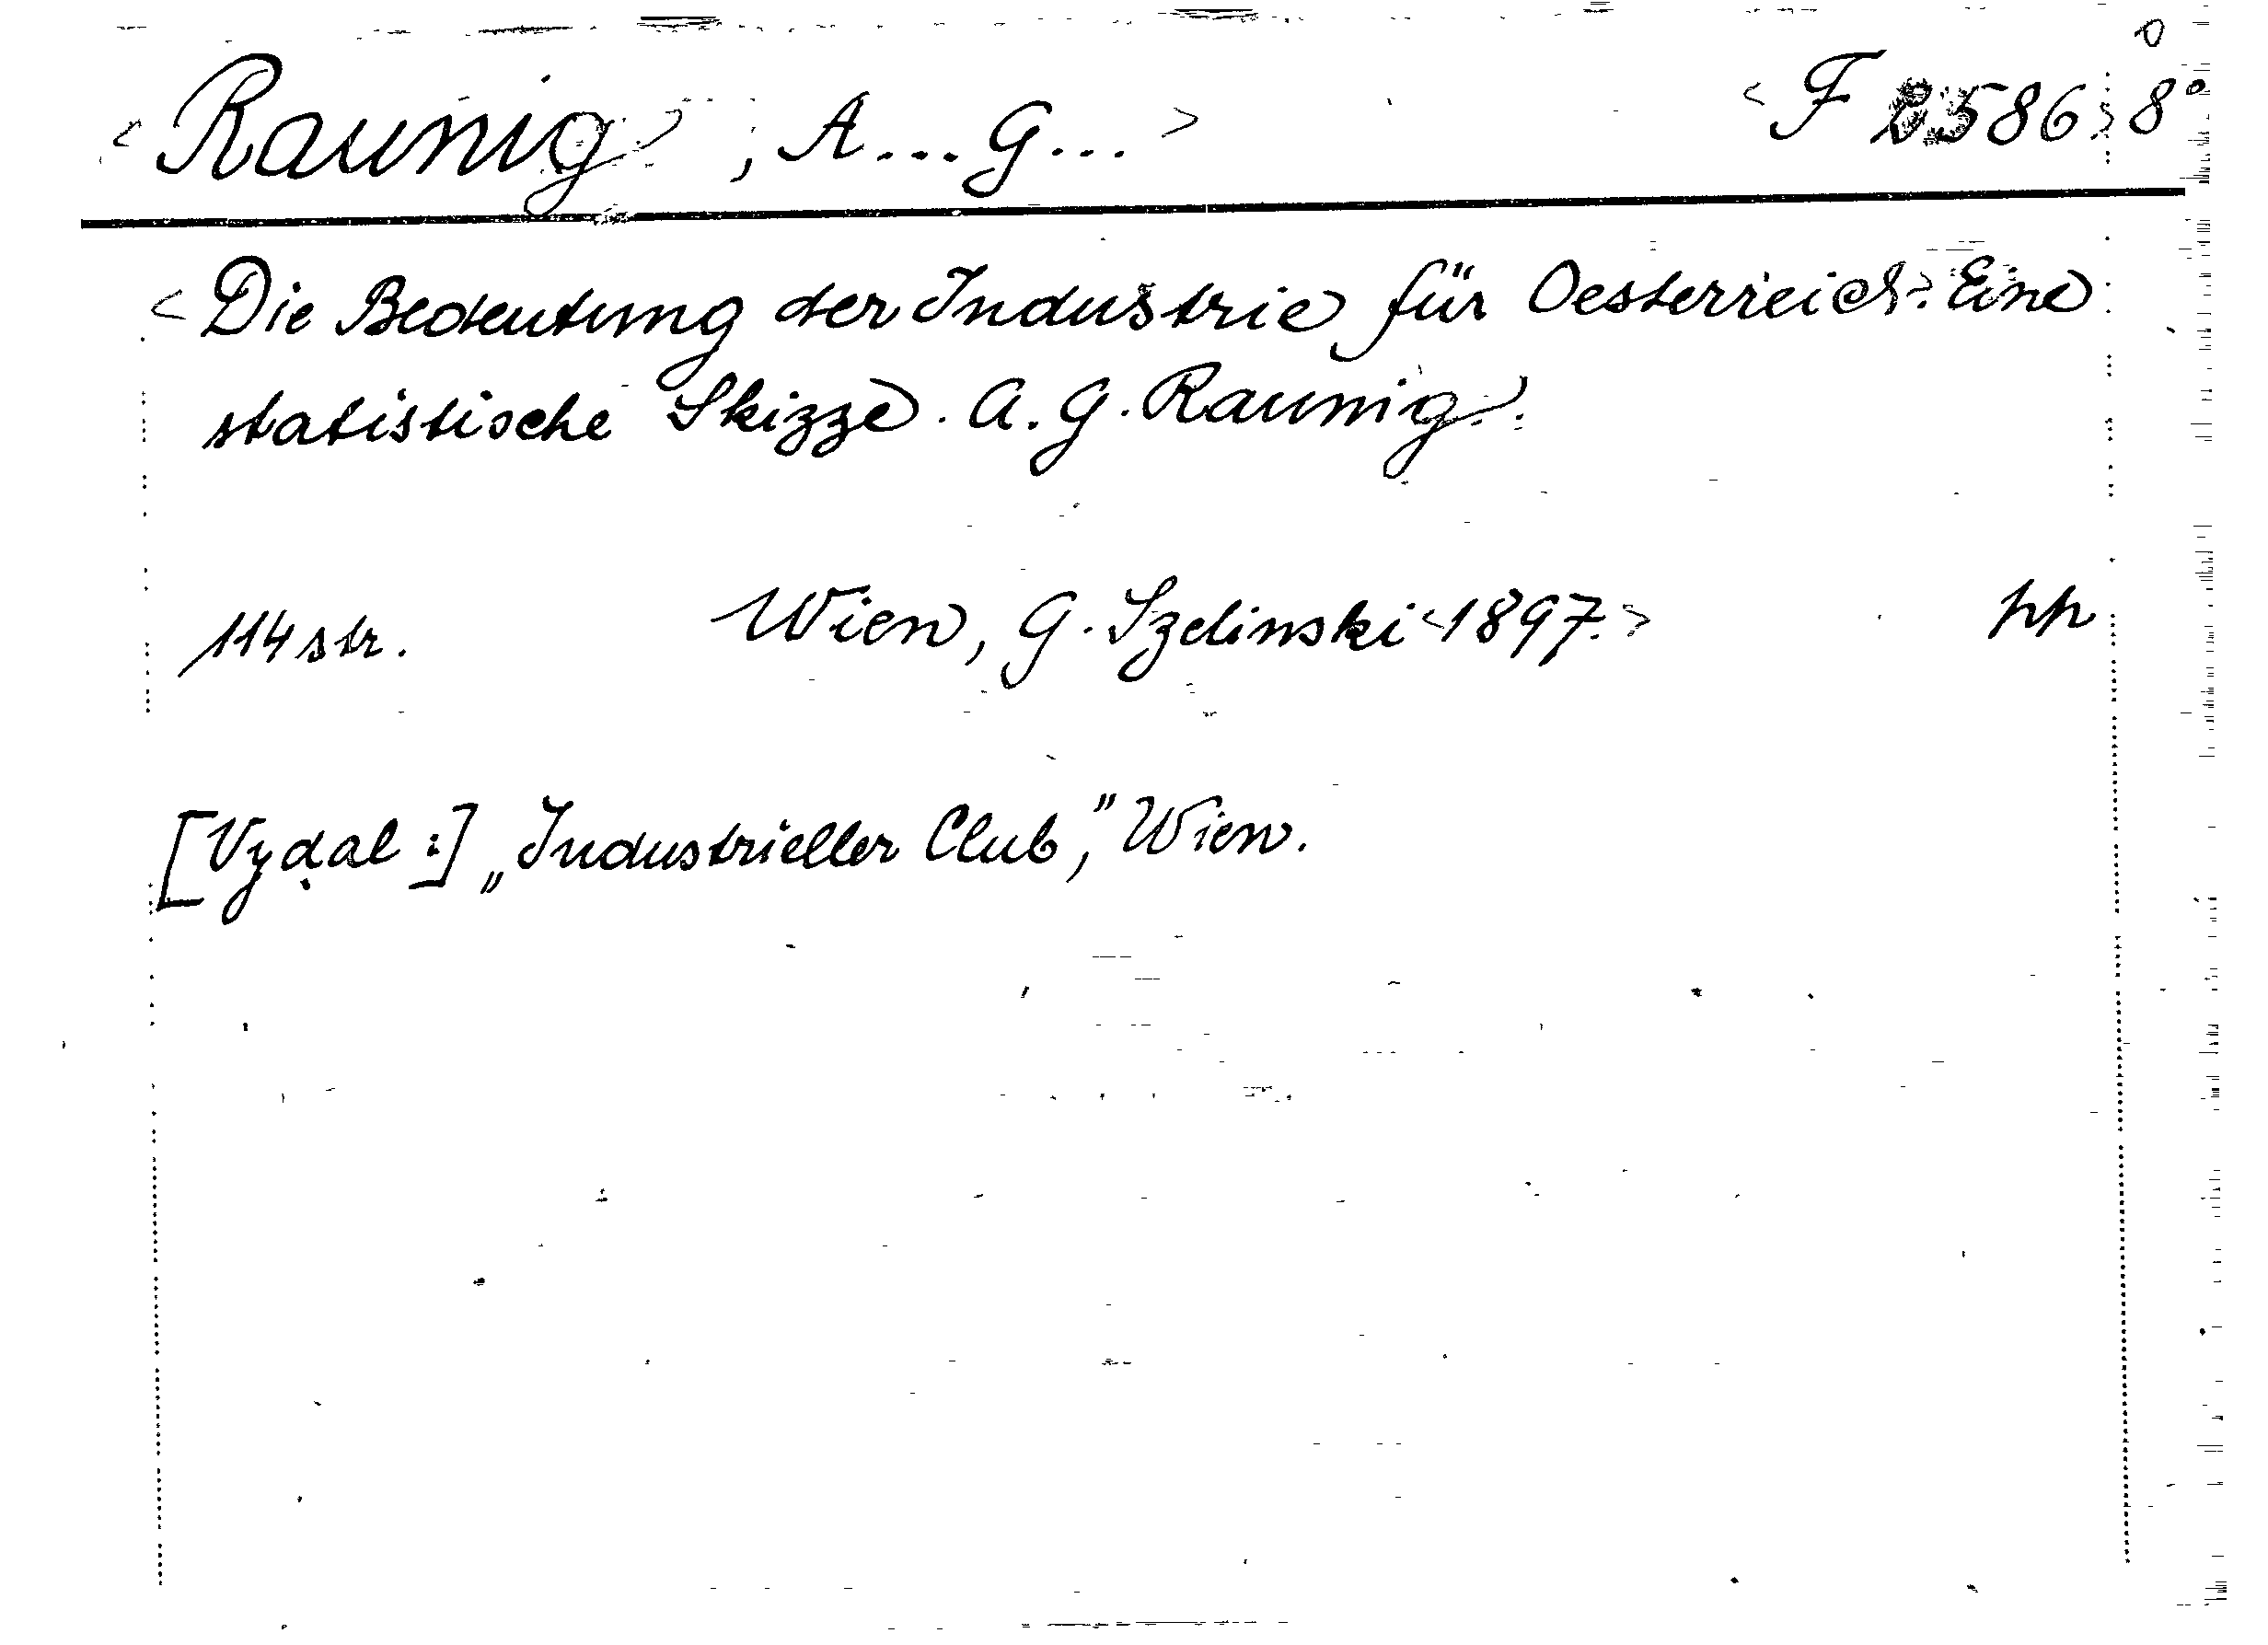 <Raunig, A... G...> <F 2586> 8°
<Die Bedeutung der Industrie für Oesterreich. Eine
statistische Skizze. A. G. Raunig.
114 str. Wien, G. Szelinski <1897.> pp
[Vydal:] „Industrieller Club,” Wien.